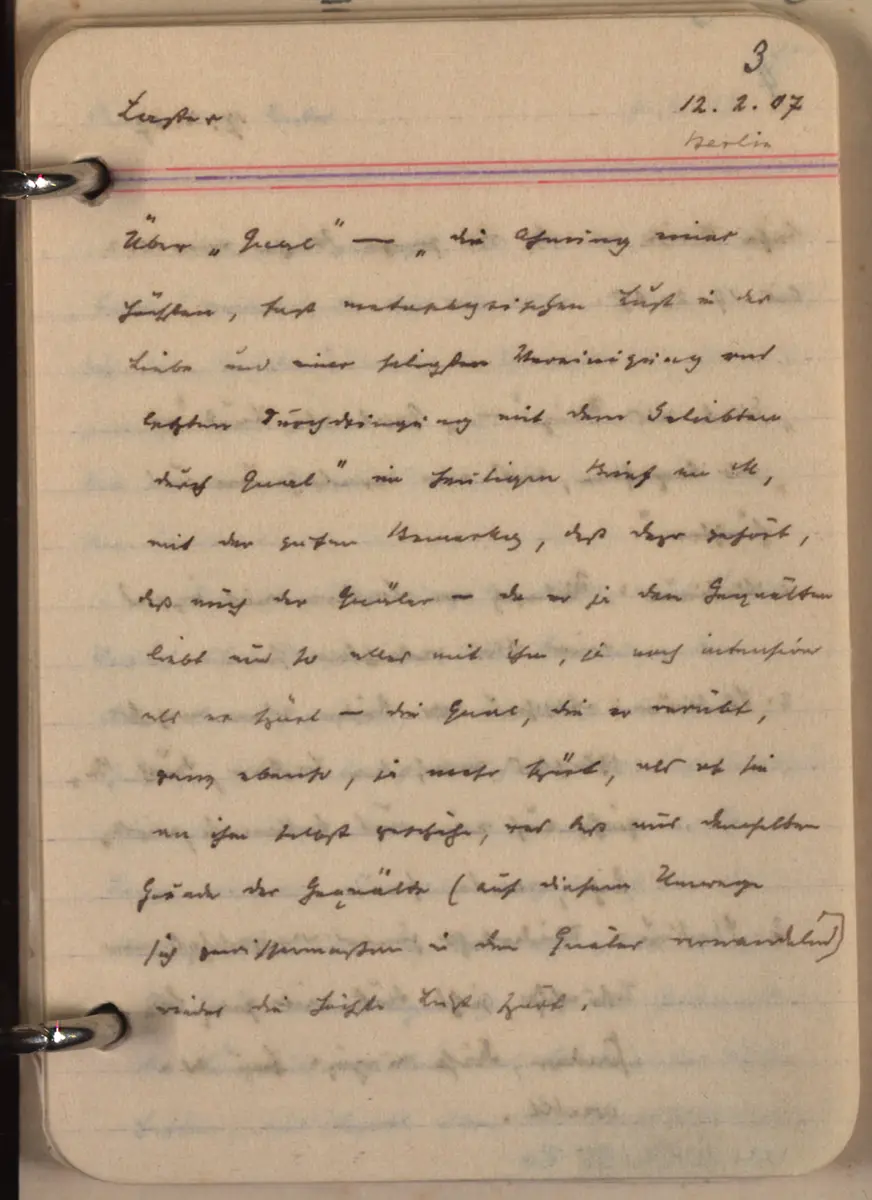 3
Laster
12. 2. 07
Berlin
Über „Qual" — „die Ahnung einer
höchsten, fast metaphysischen Lust in der
Liebe und einer seligsten Vereinigung und
letzten Durchdringung mit dem Geliebten
durch Qual" im heutigen Brief an M,
mit der guten Bemerkg, daß dazu gehört,
daß auch der Quäler — da er ja den Gequälten
liebt und so alles mit ihm, ja noch intensiver
als er spürt — die Qual, die er verübt,
ganz ebenso, ja mehr spürt, als ob sie
an ihm selbst geschähe, und daß aus demselben
Grunde der Gequälte (auf diesem Umwege
sich gewissermaßen in den Quäler verwandelnd)
wieder die höchste Lust spürt.